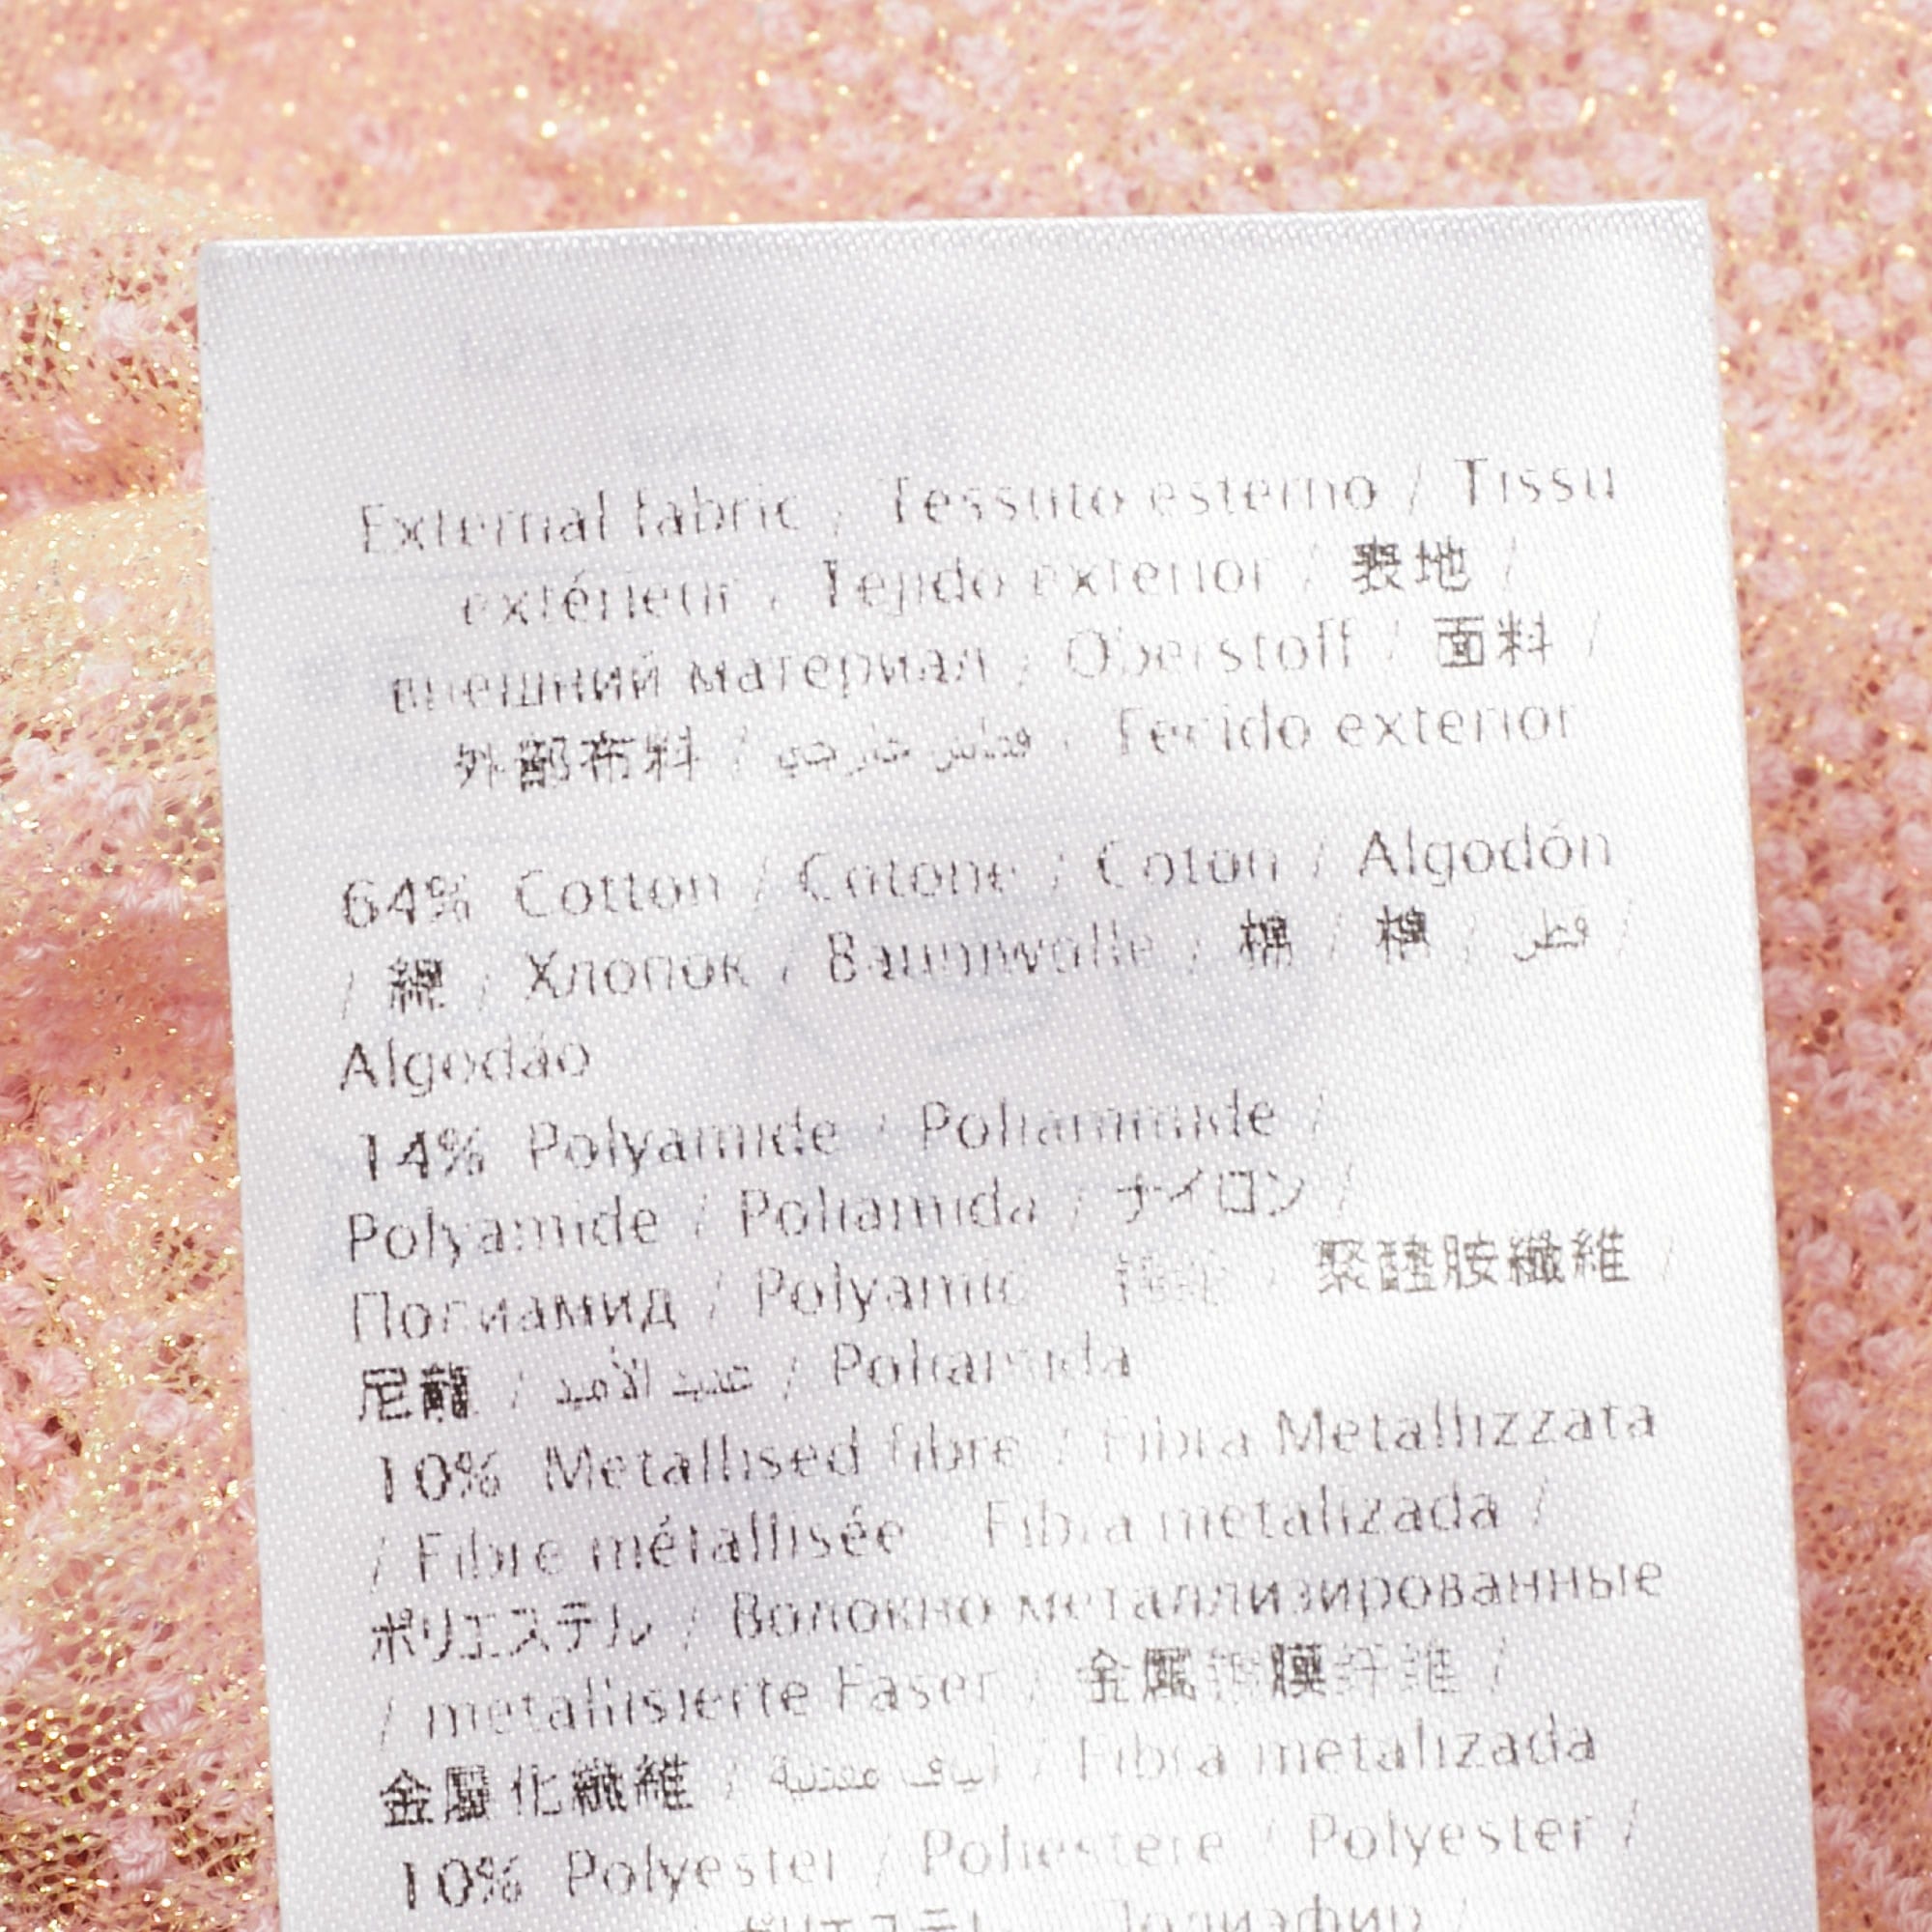 External fabric / Tessuto esterno / Tissu
extérieur / Tejido exterior / 表地 /
внешний материал / Oberstoff / 面料 /
外部布料 / قماش خارجي / Tecido exterior
64% Cotton / Cotone / Coton / Algodón
/ 綿 / Хлопок / Baumwolle / 棉 / 棉 / قطن /
Algodão
14% Polyamide / Poliammide /
Polyamide / Poliamida / ナイロン /
Полиамид / Polyamid 锦纶 / 聚醯胺纖維 /
尼龍 / عديد الأميد / Poliamida
10% Metallised fibre / Fibra Metallizzata
/ Fibre métallisée / Fibra metalizada /
ポリエステル / Волокно металлизированные
/ metallisierte Faser / 金属镀膜纤维 /
金屬化纖維 / ألياف معدنية / Fibra metalizada
10% Polyester / Poliestere / Polyester /
ポリエステル Полиэфир /